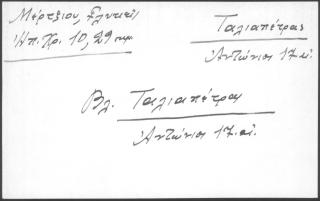 Μέρτζιου, Ελληνικά
Ἠπ. Χρ. 10, 29 σημ.
Ταλιαπέτρας
Ἀντώνιος 17. αἰ.
Βλ. Ταλιαπέτρας
Ἀντώνιος 17. αἰ.